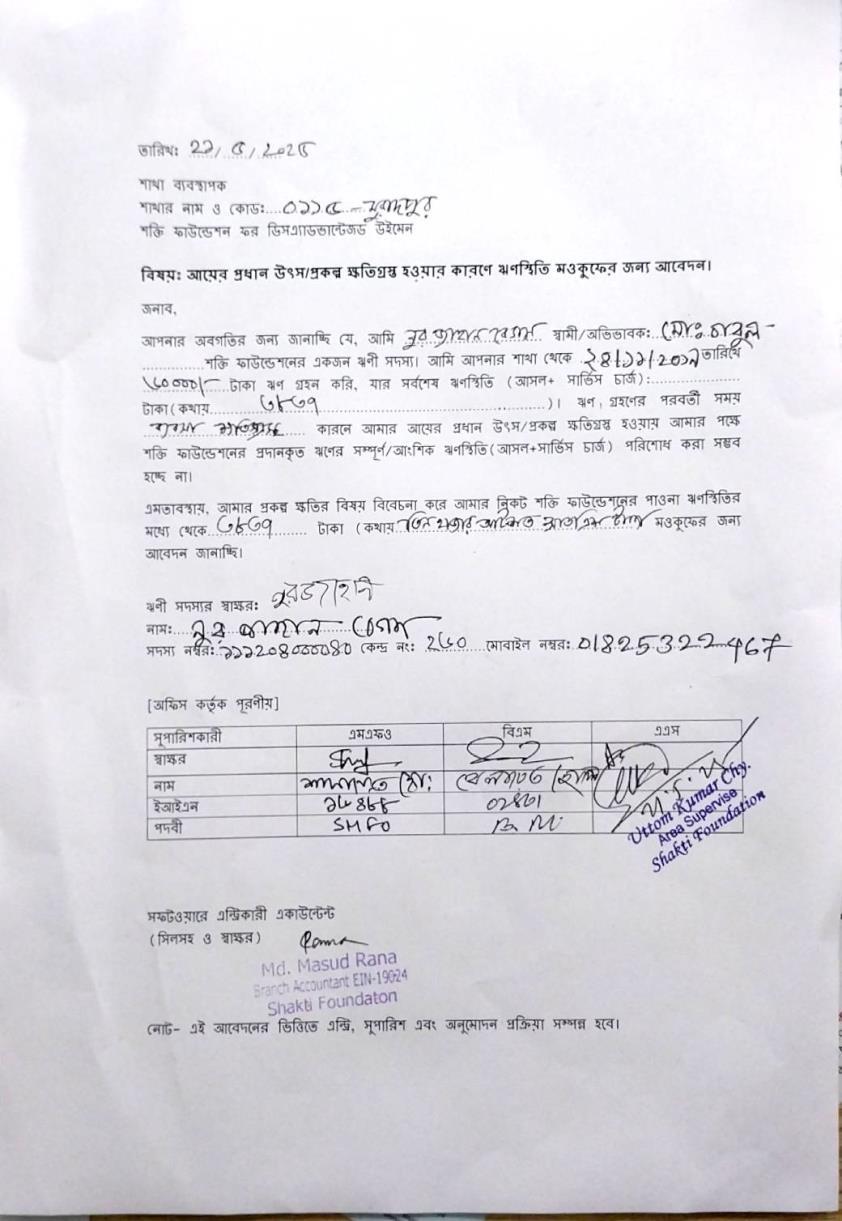 তারিখঃ 22/৫/২০২৫
শাখা ব্যবস্থাপক
শাখার নাম ও কোডঃ....০১১৫ - মুরাদপুর
শক্তি ফাউন্ডেশন ফর ডিসএ্যাডভান্টেজড উইমেন
বিষয়ঃ আয়ের প্রধান উৎস/প্রকল্প ক্ষতিগ্রস্থ হওয়ার কারণে ঋণস্থিতি মওকুফের জন্য আবেদন।
জনাব,
আপনার অবগতির জন্য জানাচ্ছি যে, আমি নুর জাহান বেগম স্বামী/অভিভাবকঃ মোঃ বাবুল -
শক্তি ফাউন্ডেশনের একজন ঋনী সদস্য। আমি আপনার শাখা থেকে তারিখে
টাকা ঋণ গ্রহন করি, যার সর্বশেষ ঋণস্থিতি (আসল+ সার্ভিস চার্জ):
টাকা(কথায় ৩৮৩৭ )। ঋণ গ্রহণের পরবর্তী সময়
কারনে আমার আয়ের প্রধান উৎস/প্রকল্প ক্ষতিগ্রস্থ হওয়ায় আমার পক্ষে
শক্তি ফাউন্ডেশনের প্রদানকৃত ঋণের সম্পূর্ণ/আংশিক ঋণস্থিতি(আসল+সার্ভিস চার্জ) পরিশোধ করা সম্ভব
হচ্ছে না।
এমতাবস্থায়, আমার প্রকল্প ক্ষতির বিষয় বিবেচনা করে আমার নিকট শক্তি ফাউন্ডেশনের পাওনা ঋণস্থিতির
মধ্যে থেকে ৩৮৩৭ টাকা (কথায় তিন হাজার আটশত মওকুফের জন্য
আবেদন জানাচ্ছি।
ঋনী সদস্যর স্বাক্ষরঃ নুরজাহান
নামঃ নুর জাহান বেগম
সদস্য নম্বরঃ কেন্দ্র নং: ২৬০ মোবাইল নম্বরঃ 01825322467
[অফিস কর্তৃক পূরনীয়]
সুপারিশকারী এমএফও বিএম এএস
স্বাক্ষর
নাম
ইআইএন
পদবী SMFO B M
Uttom Kumar Chy.
Area Supervise
Shakti Foundation
সফটওয়্যারে এন্ট্রিকারী একাউন্টেন্ট
(সিলসহ ও স্বাক্ষর) Rana
Md. Masud Rana
Branch Accountant EIN-19024
Shakti Foundaton
নোট- এই আবেদনের ভিত্তিতে এন্ট্রি, সুপারিশ এবং অনুমোদন প্রক্রিয়া সম্পন্ন হবে।